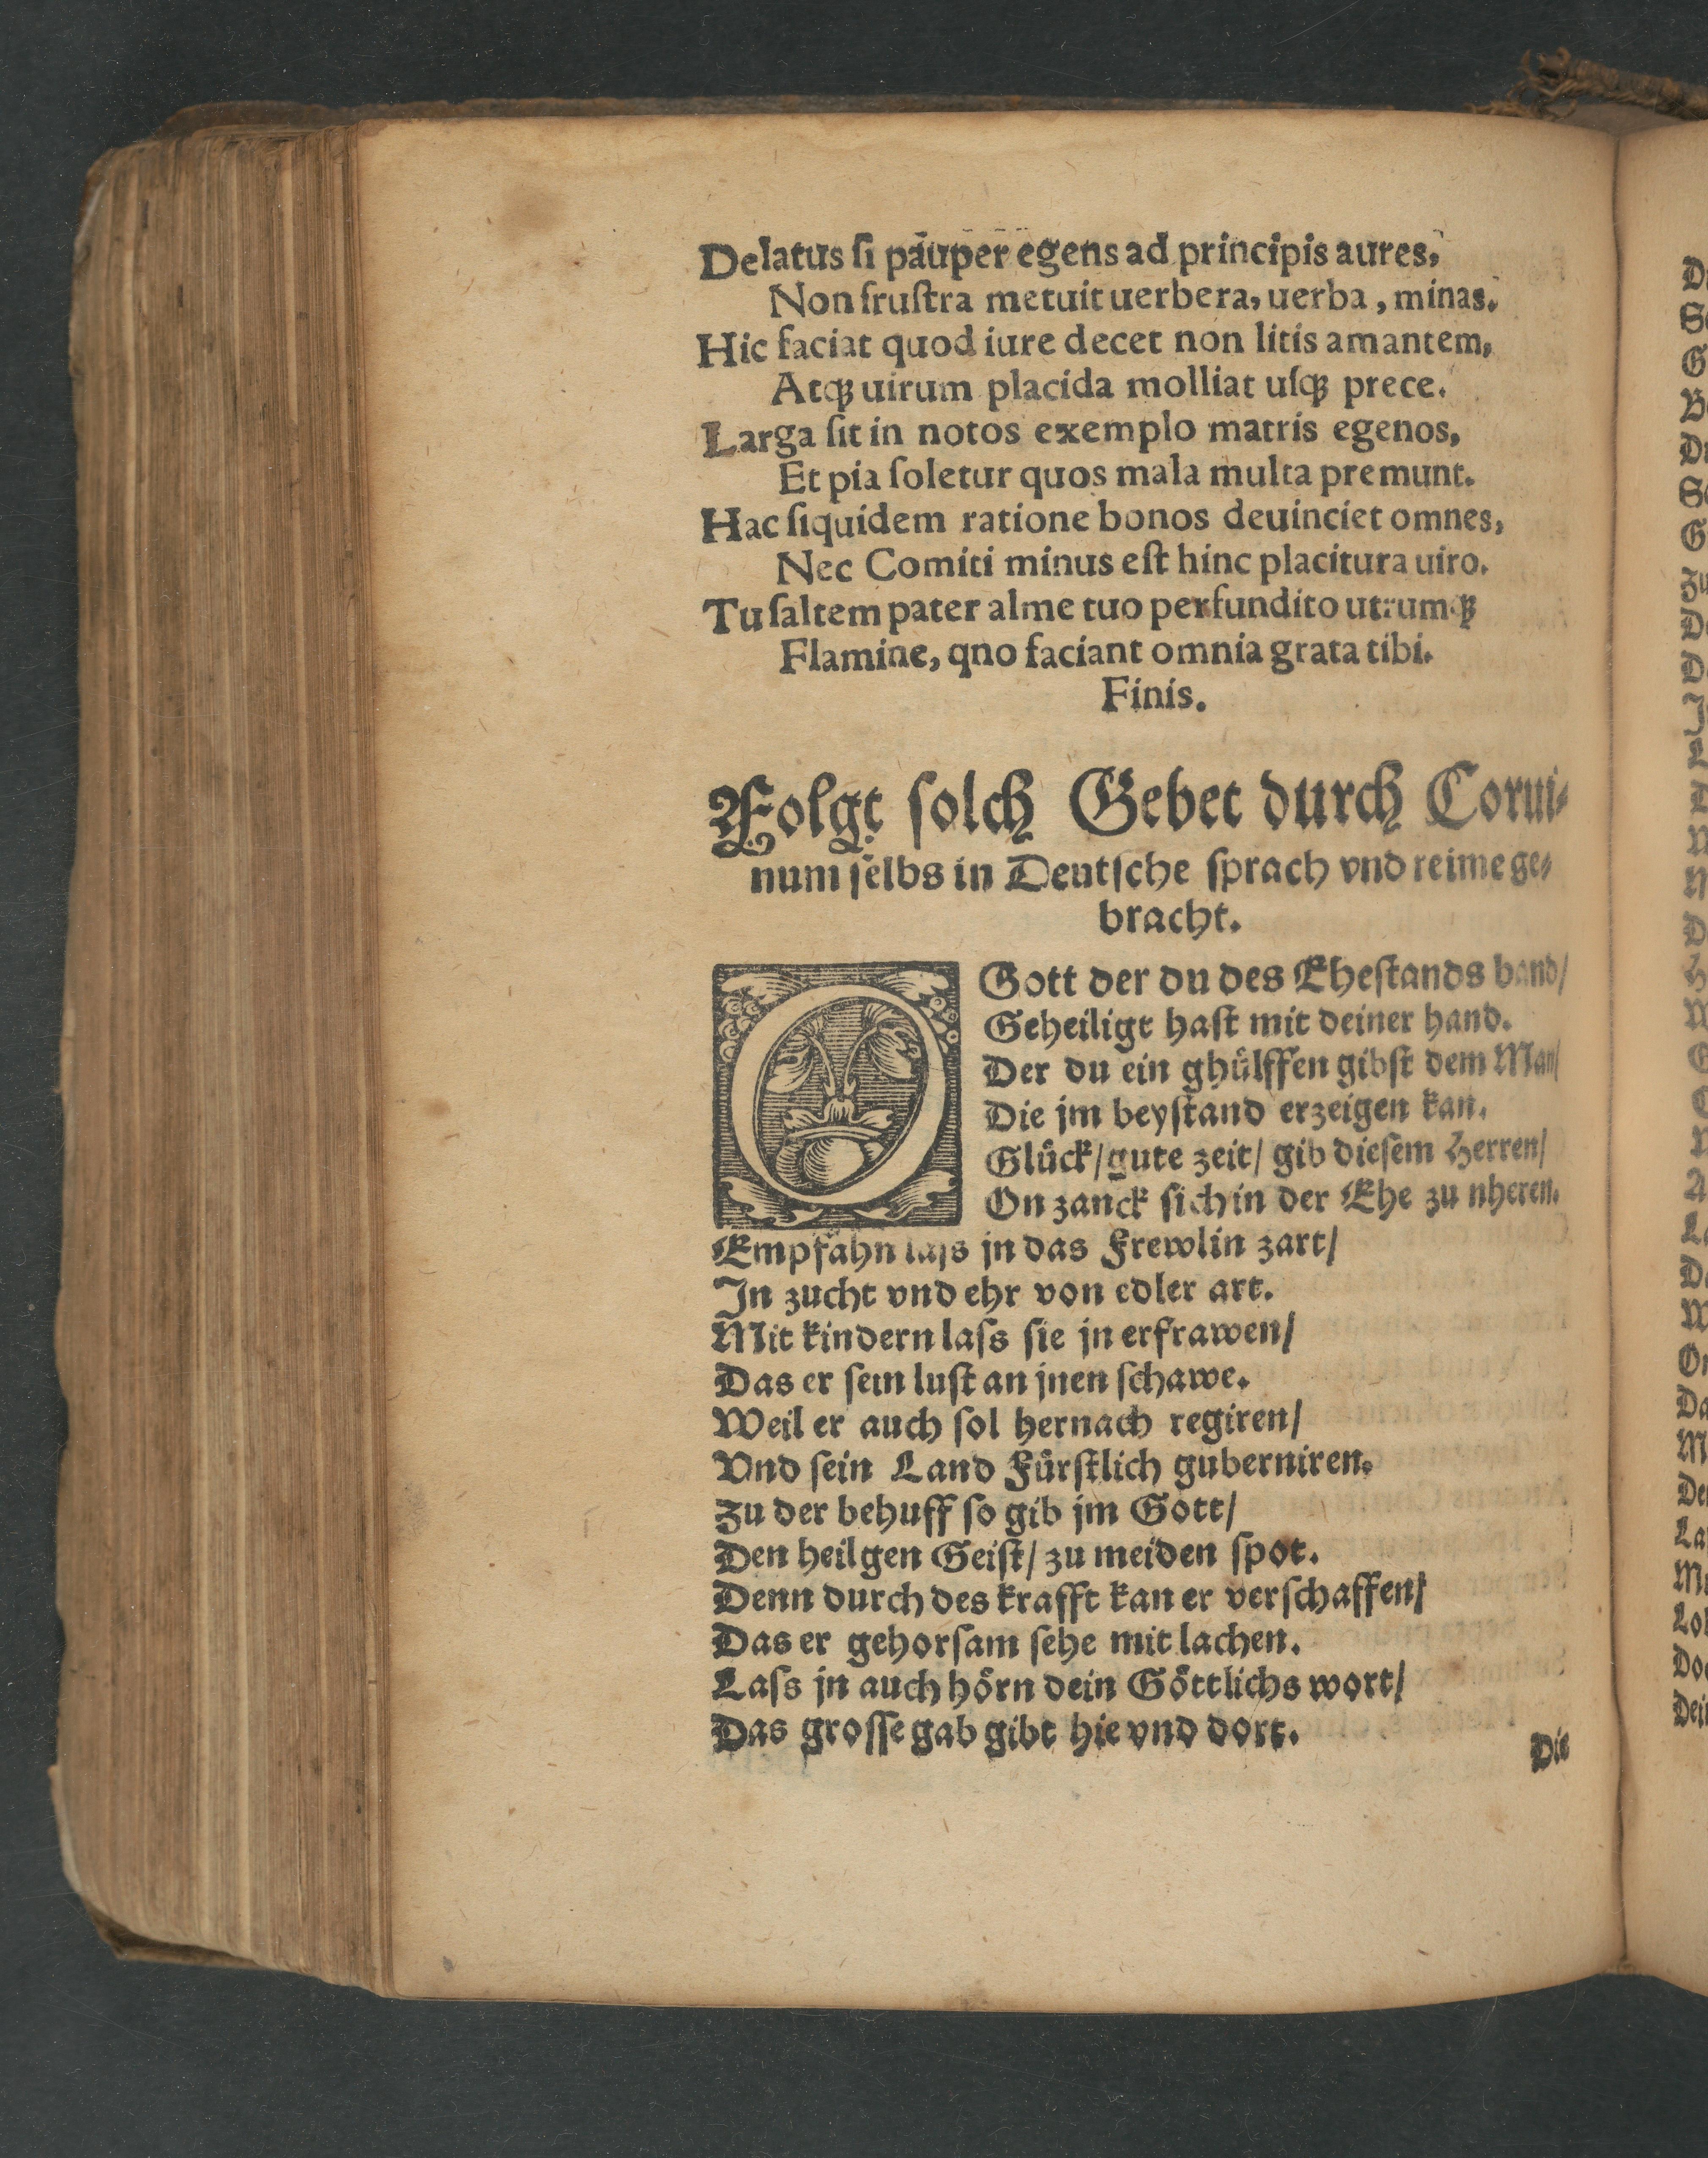 Delatus ſi pauper egens ad principis aures,
Non fruſtra metuit uerbera, uerba, minas.
Hic faciat quod iure decet non litis amantem,
Atqꝫ uirum placida molliat uſqꝫ prece.
Larga ſit in notos exemplo matris egenos,
Et pia ſoletur quos mala multa premunt.
Hac ſiquidem ratione bonos deuinciet omnes,
Nec Comiti minus eſt hinc placitura uiro.
Tu ſaltem pater alme tuo perfundito utrumqꝫ
Flamine, qno faciant omnia grata tibi.
Finis.
Folgt ſolch Gebet durch Corui⸗
num ſelbs in Deutſche ſprach vnd reime ge⸗
bracht.
O Gott der du des Eheſtands band/
Geheiligt haſt mit deiner hand.
Der du ein ghuͤlffen gibſt dem Man/
Die jm beyſtand erzeigen kan.
Gluͤck/ gute zeit/ gib dieſem Herren/
On zanck ſich in der Ehe zu nheren.
Empfahn laſs jn das Frewlin zart/
In zucht vnd ehr von edler art.
Mit kindern laſs ſie jn erfrawen/
Das er ſein luſt an jnen ſchawe.
Weil er auch ſol hernach regiren/
Vnd ſein Land Fuͤrſtlich guberniren.
Zu der behuff ſo gib jm Gott/
Den heilgen Geiſt/ zu meiden ſpot.
Denn durch des krafft kan er verſchaffen/
Das er gehorſam ſehe mit lachen.
Laſs jn auch hoͤrn dein Goͤttlichs wort/
Das groſſe gab gibt hie vnd dort.
Die